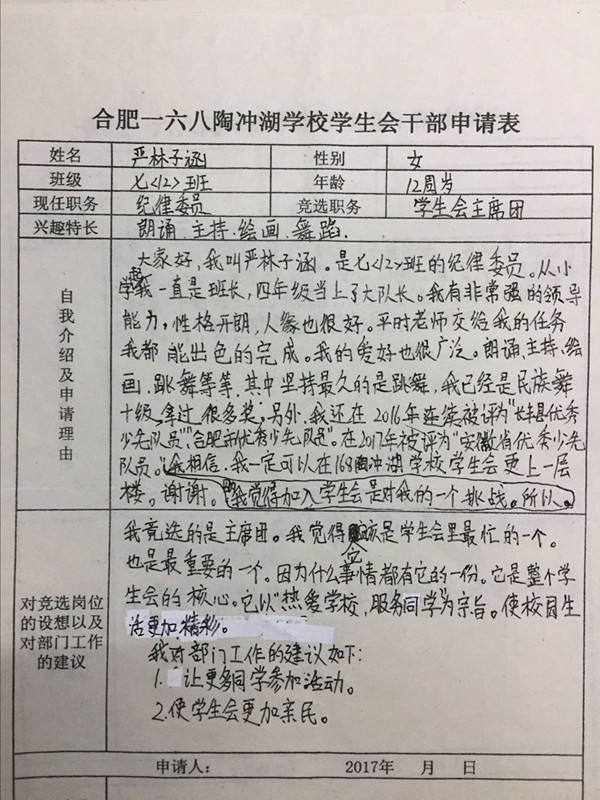 合肥一六八陶冲湖学校学生会干部申请表
姓名 严林子涵 性别 女
班级 七<12>班 年龄 12周岁
现任职务 纪律委员 竞选职务 学生会主席团
兴趣特长 朗诵.主持.绘画.舞蹈.
自我介绍及申请理由
大家好,我叫严林子涵。是七<12>班的纪律委员。从小
学起我一直是班长,四年级当上了大队长。我有非常强的领导
能力,性格开朗,人缘也很好。平时老师交给我的任务
我都能出色的完成。我的爱好也很广泛。朗诵、主持、绘
画、跳舞等等,其中坚持最久的是跳舞,我已经是民族舞
十级,拿过很多奖;另外,我还在2016年连续被评为“长丰县优秀
少先队员”,“合肥市优秀少先队员”。在2017年被评为“安徽省优秀少先
队员。”我相信,我一定可以在168陶冲湖学校学生会更上一层
楼。谢谢。我觉得加入学生会是对我的一个挑战。所以
对竞选岗位的设想以及对部门工作的建议
我竞选的是主席团。我觉得它该是学生会里最忙的一个。
也是最重要的一个。因为什么事情都有它的一份。它是整个学
生会的核心。它以“热爱学校,服务同学”为宗旨。使校园生
活更加精彩。
我对部门工作的建议如下:
1.让更多同学参加活动。
2.使学生会更加亲民。
申请人: 2017年 月 日